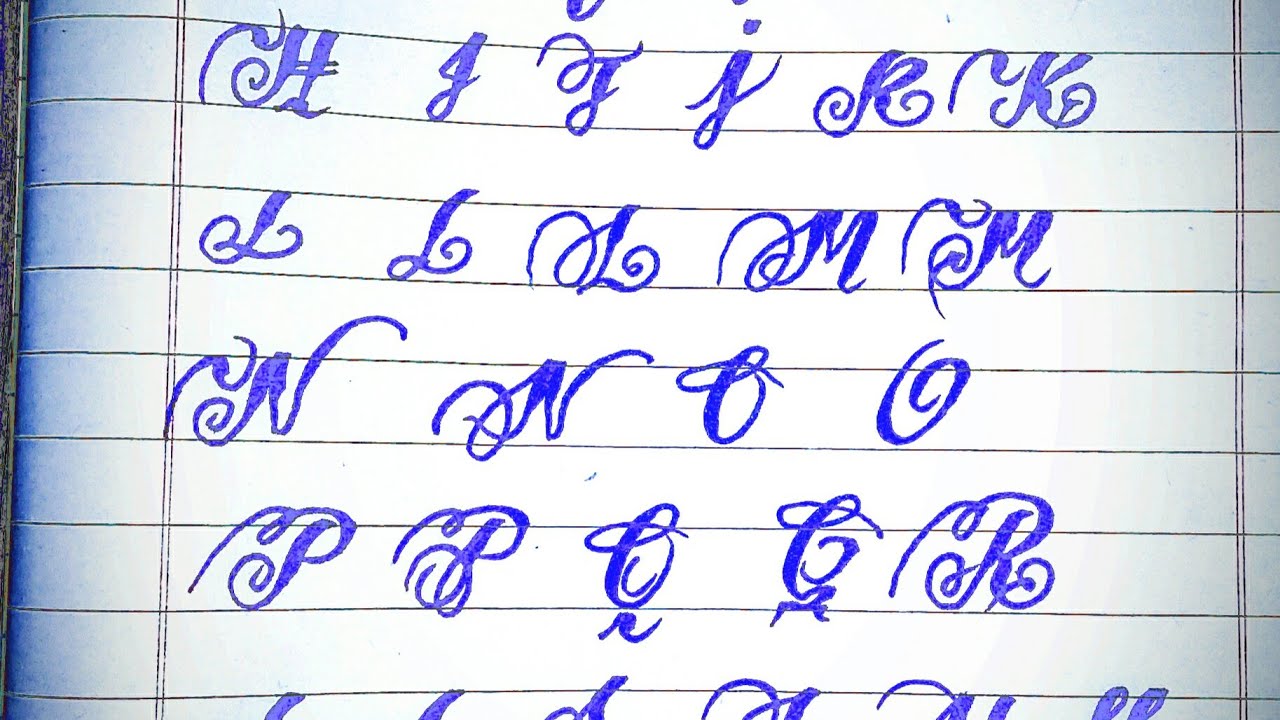 H I J j K K
L L L M M
N N O O
P P Q Q R